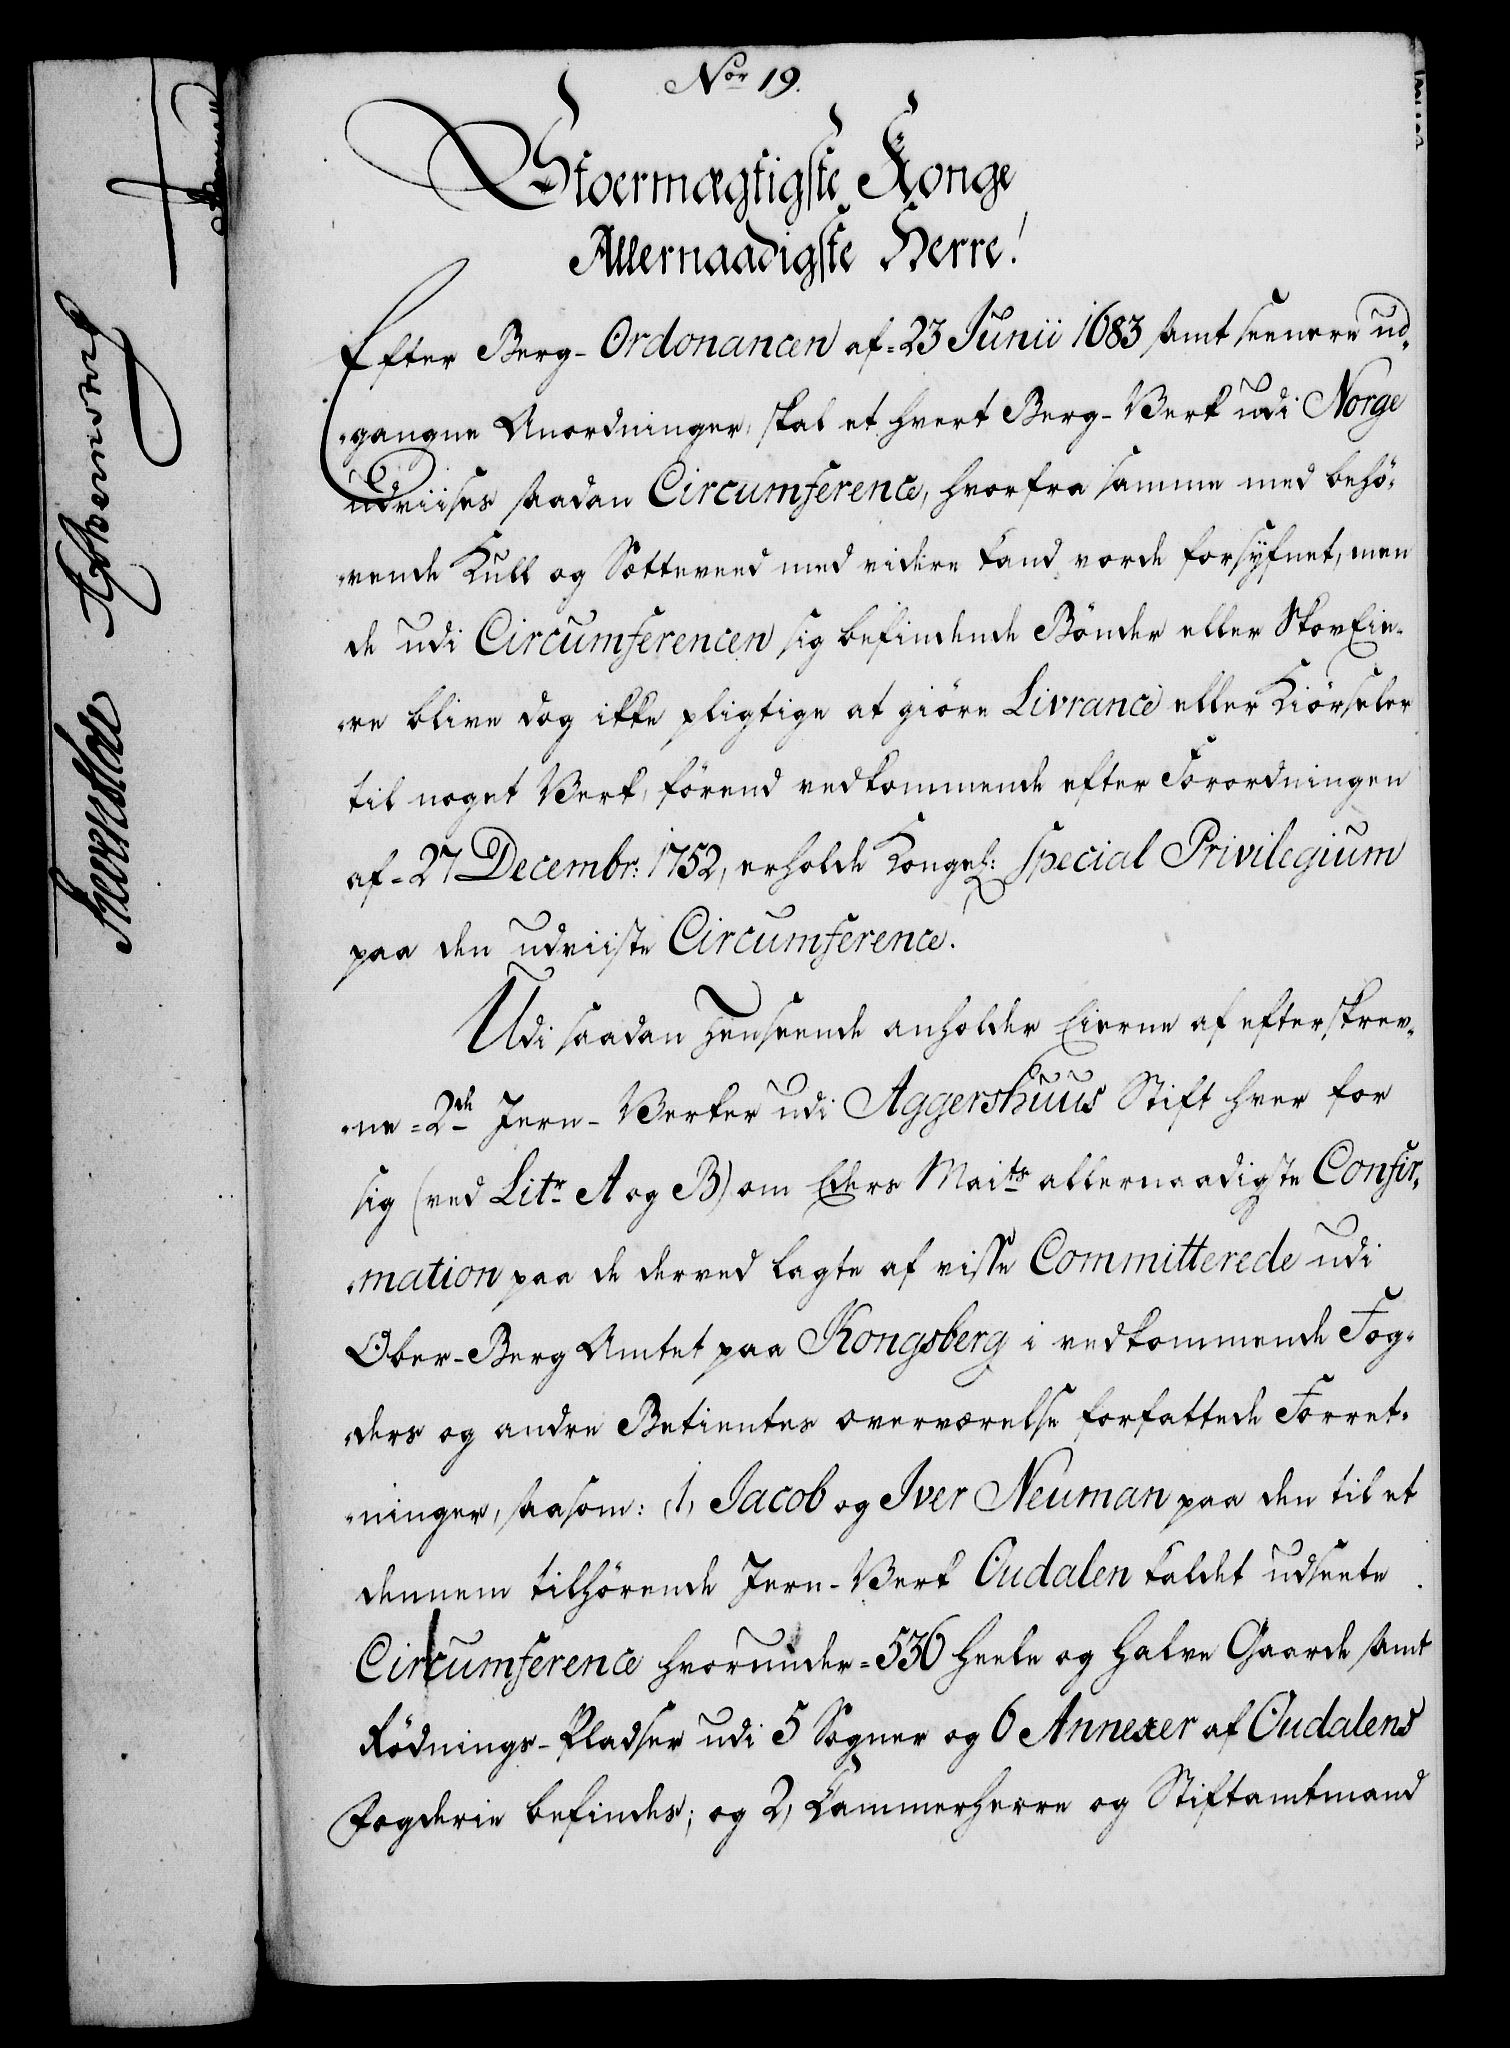 Nor 19.
Stoermægtigste Konge
Allernaadigste Herre!
Efter Berg-Ordonancen af=23 Junii 1683 samt seenere ud-
gangne Anordninger, skal et hvert Berg-Verk udi Norge
udviises saadan Circumference, hvorfra samme med behö-
vende Kull og Sætteveed med videre kand vorde forsyfnet, men
de udi Circumferencen sig befindende Bönder eller SkovEie-
re blive dog ikke pligtige at giöre Livrance eller Kiörseler
til noget Verk, förend vedkommende efter Forordningen
af-27 Decembr: 1752, erholde Kongel: special Privilegium
paa den udviiste Circumference.
Udi saadan Henseende anholder Eierne af efterskrev-
ne=2de Jern-Verker udi Aggershuus Stift hver for
sig (ved Litr A og B) om Eders Maits allernaadigste Confir-
mation paa de derved lagte af visse Committerede udi
Ober-Berg Amtet paa Kongsberg i vedkommende Fog-
ders og andre Betientes overværelse forfattede Forret-
ninger, saasom: 1, Jacob og Iver Neuman paa den til et
dennem tilhörende Jern-Verk Oudalen kaldet udseete
Circumference hvorunder=536 heele og halve Gaarde samt
Rödnings-Pladser udi 5 Sogner og 6 Annexer af Oudalens
Fogderie befindes; og 2, Cammerherre og Stiftamtmand